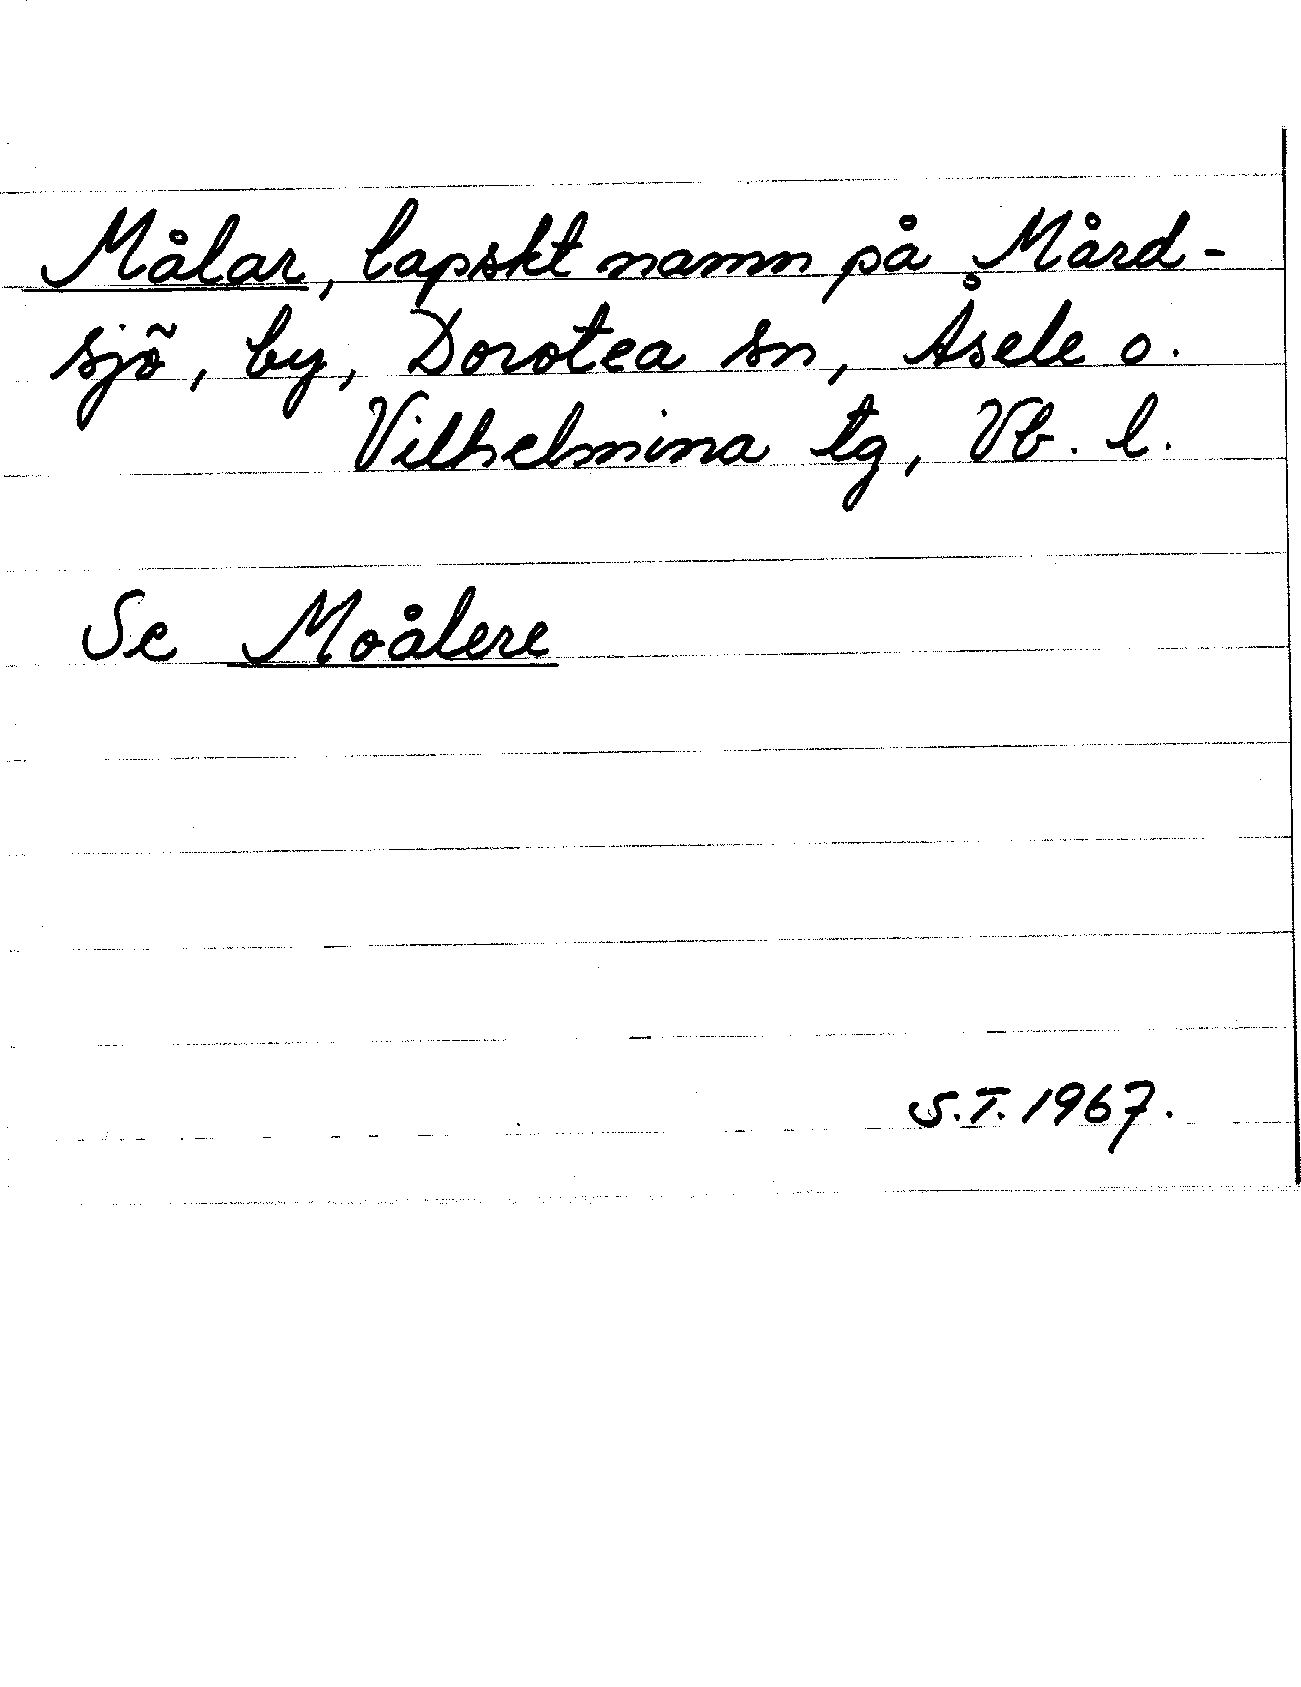 Målar, lapskt namn på Mård-
sjö, by, Dorotea sn, Åsele o.
Vilhelmina tg, Vb. l.
Se Moålere
S.T. 1967.